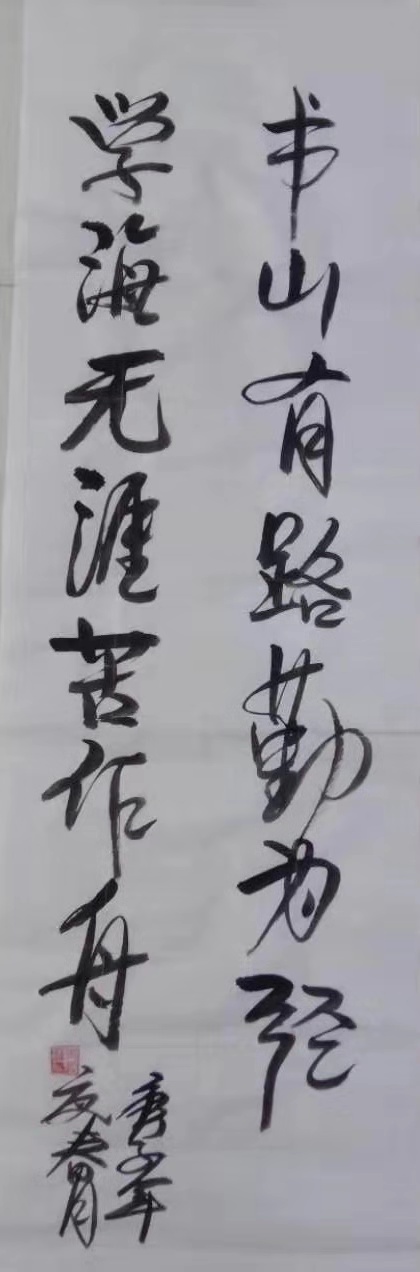 书山有路勤为径
学海无涯苦作舟
庚子年